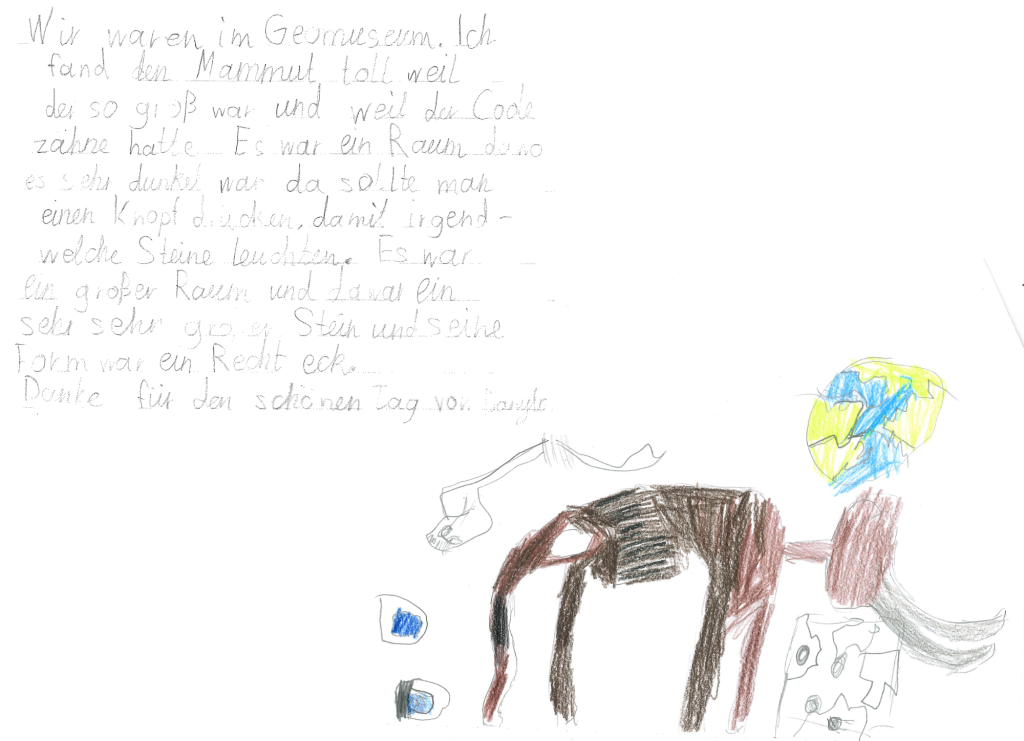 Wir waren im Geomuseum. Ich
fand den Mammut toll weil
der so groß war und weil der Code
zähne hatte Es war ein Raum da wo
es sehr dunkel war da sollte man
einen Knopf drücken, damit irgend-
welche Steine leuchten. Es war
ein großer Raum und da war ein
sehr sehr großer Stein und seine
Form war ein Recht eck.
Danke für den schönen Tag von